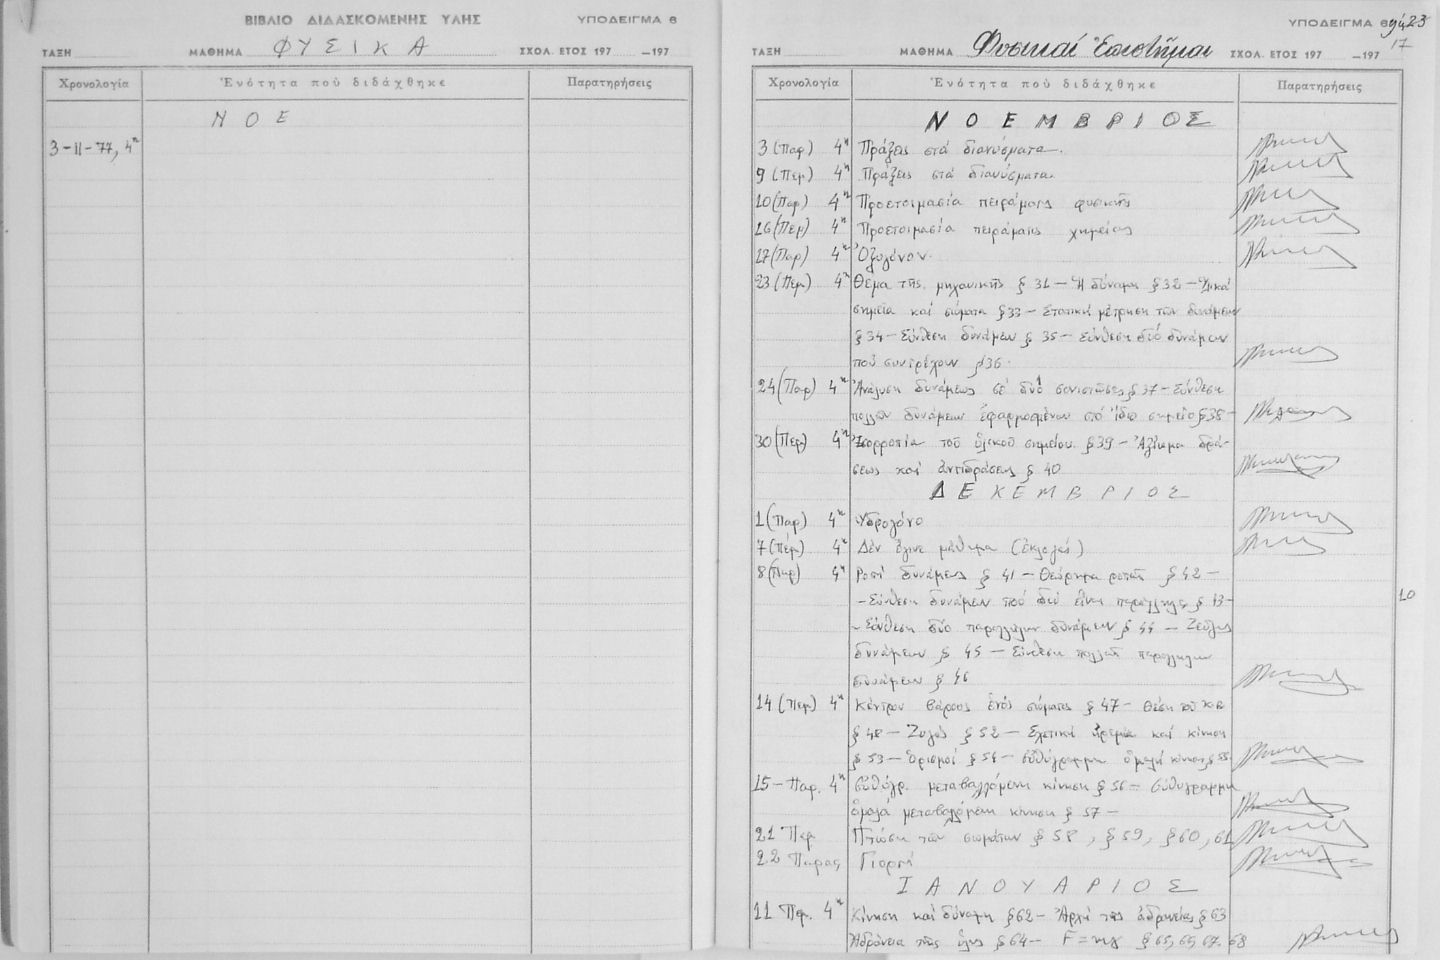 ΒΙΒΛΙΟ ΔΙΔΑΣΚΟΜΕΝΗΣ ΥΛΗΣ
ΥΠΟΔΕΙΓΜΑ 6
ΤΑΞΗ ΜΑΘΗΜΑ ΦΥΣΙΚΑ ΣΧΟΛ. ΕΤΟΣ 197 —197
Χρονολογία Ἑνότητα ποὺ διδάχθηκε Παρατηρήσεις
ΝΟΕ
3-11-77, 4η
ΥΠΟΔΕΙΓΜΑ 6
23
17
ΤΑΞΗ ΜΑΘΗΜΑ Φυσικαί Ἐπιστῆμαι ΣΧΟΛ. ΕΤΟΣ 197 —197
Χρονολογία Ἑνότητα ποὺ διδάχθηκε Παρατηρήσεις
ΝΟΕΜΒΡΙΟΣ
3 (Παρ) 4η Πράξεις στά διανύσματα.
9 (Πεμ) 4η Πράξεις στά διανύσματα
10 (Παρ) 4η Προετοιμασία πειράματος φυσικῆς
16 (Πεμ) 4η Προετοιμασία πειράματος χημείας
17 (Παρ) 4η Ὀξυγόνον.
23 (Πεμ) 4η Θέμα τῆς μηχανικῆς § 31 – Ἡ δύναμη § 32 – Ὑλικά
σημεῖα καί σώματα § 33 – Στατική μέτρηση τῶν δυνάμεων
§ 34 – Σύνθεση δυνάμεων § 35 – Σύνθεση δύο δυνάμεων
πού συντρέχουν § 36.
24 (Παρ) 4η Ἀνάλυση δυνάμεως σέ δύο συνιστῶσες § 37 – Σύνθεση
πολλῶν δυνάμεων ἐφαρμοσμένων στό ἴδιο σημεῖο § 38 –
30 (Πεμ) 4η Ἰσορροπία τοῦ ὑλικοῦ σημείου § 39 – Ἀξίωμα δρά-
σεως καί ἀντιδράσεως § 40
ΔΕΚΕΜΒΡΙΟΣ
1 (Παρ) 4η Ὑδρογόνο
7 (Πεμ) 4η Δέν ἔγινε μάθημα (ἐκλογές)
8 (Παρ) 4η Ροπή δυνάμεως § 41 – Θεώρημα ροπῶν § 42 –
– Σύνθεση δυνάμεων πού δύο εἶναι παράλληλες § 43 –
– Σύνθεση δύο παραλλήλων δυνάμεων § 44 – Ζεῦγος
δυνάμεων § 45 – Σύνθεση πολλῶν παραλλήλων
δυνάμεων § 46
10
14 (Πεμ) 4η Κέντρον βάρους ἑνός σώματος § 47 – Θέση τοῦ Κ.Β
§ 48 – Ζυγός § 52 – Σχετική ἠρεμία καί κίνηση
§ 53 – Ὁρισμοί § 54 – εὐθύγραμμη ὁμαλή κίνηση § 55
15 – Παρ. 4η Εὐθύγρ. μεταβαλλόμενη κίνηση § 56 – Εὐθύγραμμη
ὁμαλά μεταβαλλόμενη κίνηση § 57 –
21 Πεμ Πτώση τῶν σωμάτων § 58, § 59, § 60, 61
22 Παρασ Γιορτή
ΙΑΝΟΥΑΡΙΟΣ
11 Πεμ. 4η Κίνηση καί δύναμη § 62 – Ἀρχή τῆς ἀδρανείας § 63
Ἀδράνεια τῆς ὕλης § 64 – F = mγ § 65, 66, 67. 68